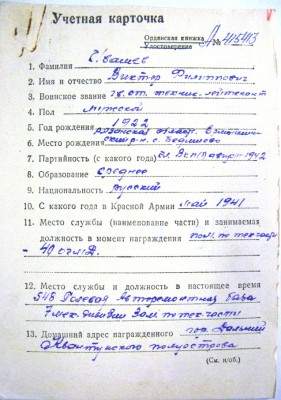 Учетная карточка
Орденская книжка
Удостоверение А № 415413
1. Фамилия
2. Имя и отчество Виктор Филиппович
3. Воинское звание гв. ст. техник-лейтенант
4. Пол мужской
5. Год рождения 1922
6. Место рождения
7. Партийность (с какого года) чл. ВКП(б) август 1942
8. Образование среднее
9. Национальность русский
10. С какого года в Красной Армии май 1941
11. Место службы (наименование части) и занимаемая
должность в момент награждения пом. по тех. части
12. Место службы и должность в настоящее время
548 Полевая Авторемонтная База
7 мех. дивизии Зам. по тех. части
13. Домашний адрес награжденного гор. Дальний
Квантунского полуострова
(См. н/об.)